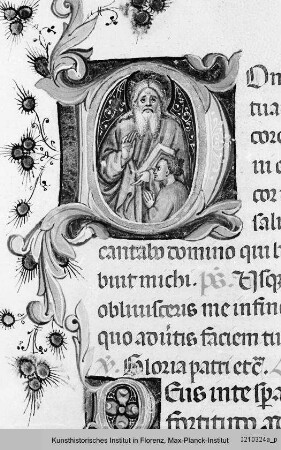 Om
tua
coro
in c
cor
salu
cantabo domino qui b
buit michi. ps. Usqz
oblivisceris me in fine
quo advertis faciem tu
V. Gloria patri etc.
Deus in te spera
fortitudo
Kunsthistorisches Institut in Florenz, Max-Planck-Institut